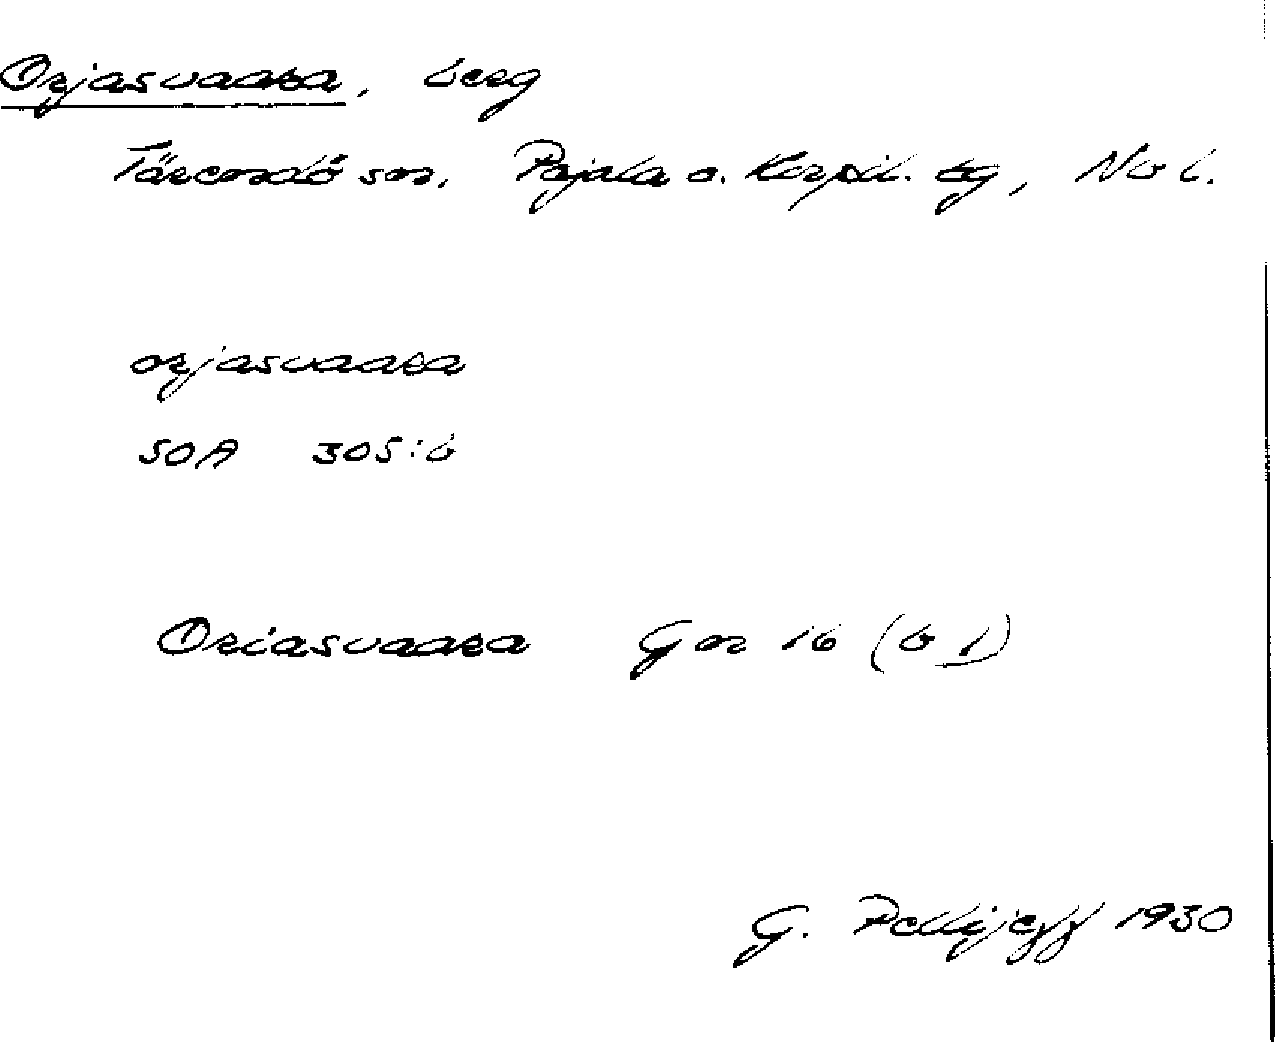 Orjasvaara, berg
Tärendö sn, Pajala o. Korpil. tg, Nb l.
orjasvaara
SOA 305:6
Oriasvaara Gor 16 (b 1)
G. Pellijeff 1930